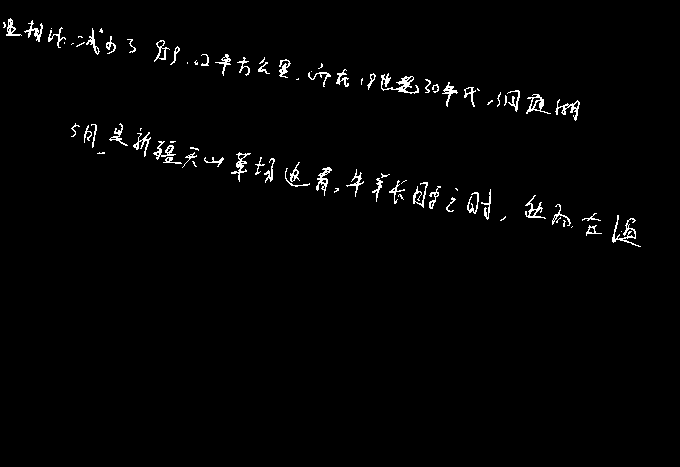 相比,减少了平方公里.而在19世纪30年代,洞庭湖
5月,是新疆天山草场返青,牛羊长膘之时,然而在